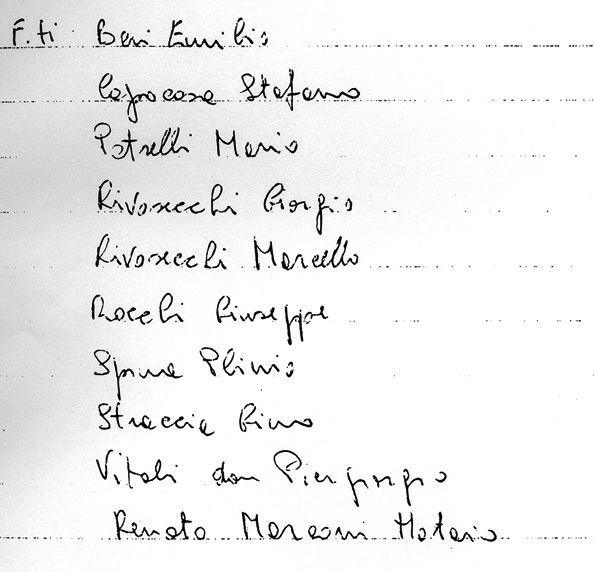 F.ti Beri Emilio
Capocasa Stefano
Petrelli Mario
Rivosecchi Giorgio
Rivosecchi Marcello
Rocchi Giuseppe
Spina Plinio
Straccia Gino
Vitali don Piergiorgio
Renato Marconi Notaio